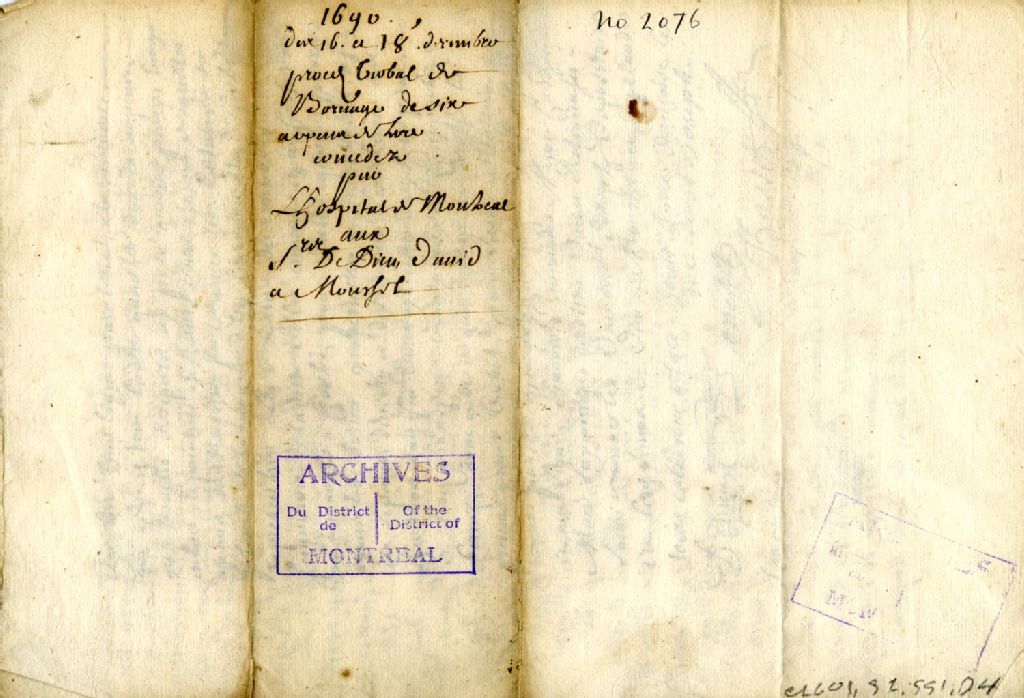 1690.
des 16. et 18. decembre
procez verbal de
Bornage de six
arpens de terre
concedez
par
L'hospital de Montreal
aux
Srs. De Dieu, david
et Mousset
No 2076
ARCHIVES
Du District
de
Of the
District of
MONTREAL